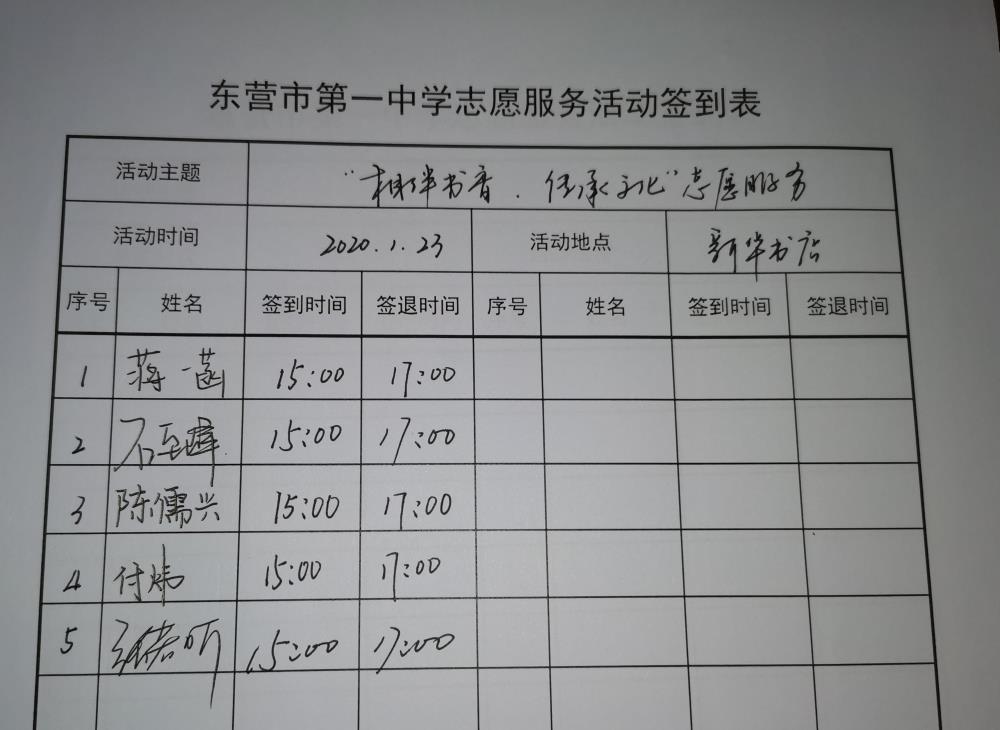 东营市第一中学志愿服务活动签到表
活动主题 “相伴书香．传承文化”志愿服务
活动时间 2020.1.23 活动地点 新华书店
序号 姓名 签到时间 签退时间 序号 姓名 签到时间 签退时间
1 蒋一菡 15:00 17:00
2 石至 15:00 17:00
3 陈儒兴 15:00 17:00
4 付炜 15:00 17:00
5 15:00 17:00